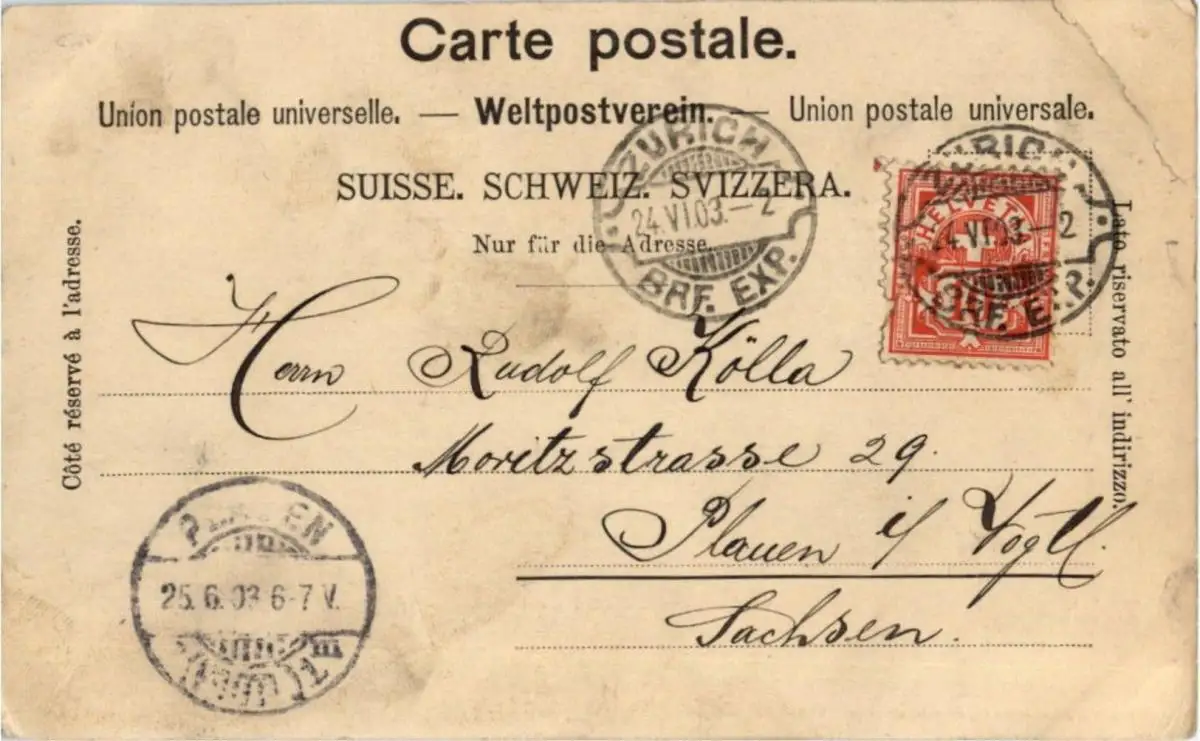 Carte postale.
Union postale universelle. — Weltpostverein. — Union postale universale.
SUISSE. SCHWEIZ. SVIZZERA.
Nur für die Adresse.
Côté réservé à l'adresse.
Lato riservato all' indirizzo.
ZÜRICH
24.VI.03.–2
BRF. EXP.
HELVETIA
ZÜRICH
24.VI.03.–2
BRF. EXP.
Herrn Rudolf Kölla
Moritzstrasse 29.
Plauen i/ Vogtl.
Sachsen.
PLAUEN
25.6.03 6-7 V.